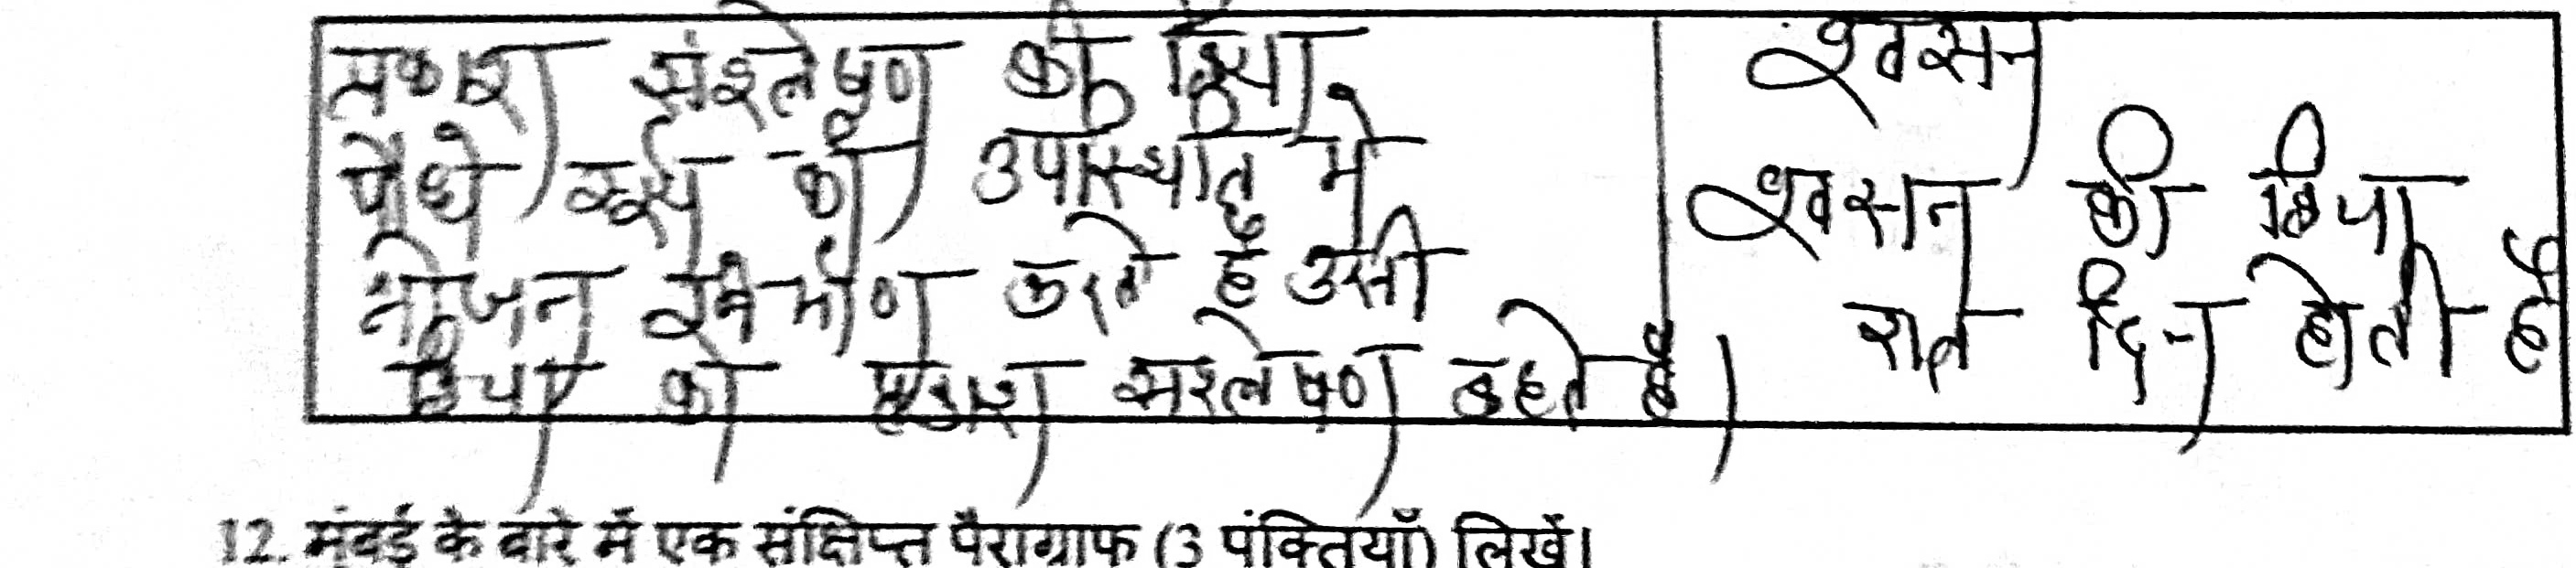 प्रकाश संश्लेषण की क्रिया
पौधे सूर्य की उपस्थिति में
भोजन निर्माण करते है उसी
क्रिया को प्रकाश संश्लेषण कहते है।
श्वसन
श्वसन की क्रिया
रात दिन होती है
12. मुंबई के बारे में एक संक्षिप्त पैराग्राफ (3 पंक्तियाँ) लिखें।